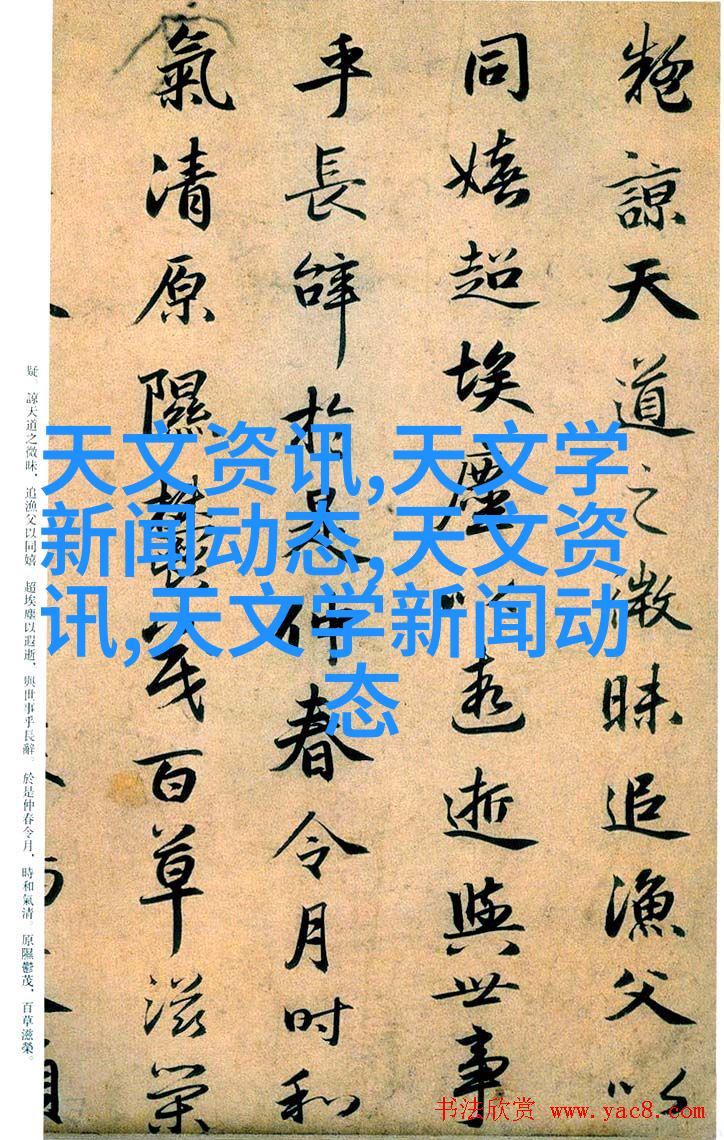 疑 諒天道之微昧 追漁父以
同嬉 超埃塵以遐逝 與世事
乎長辭 於是仲春令月 時和
氣清 原隰鬱茂 百草滋榮
疑。諒天道之微昧,追漁父以同嬉 超埃塵以遐逝,與世事乎長辭。於是仲春令月,時和氣清。原隰鬱茂,百草滋榮。
天文资讯,天文学
新闻动态,天文资
讯,天文学新闻动
态
书法欣赏 www.yac8.com